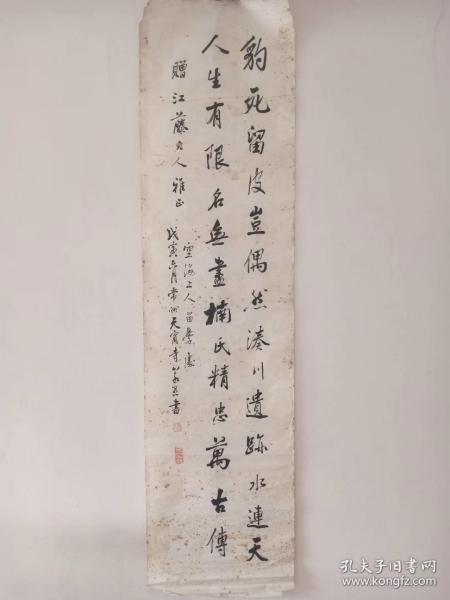 豹死留皮豈偶然湊川遺跡水連天
人生有限名無盡楠氏精忠萬古傳
贈江藤大人雅正
空海上人留學處
戊寅六月常州天寧寺書
孔夫子旧书网
www.kongfz.com